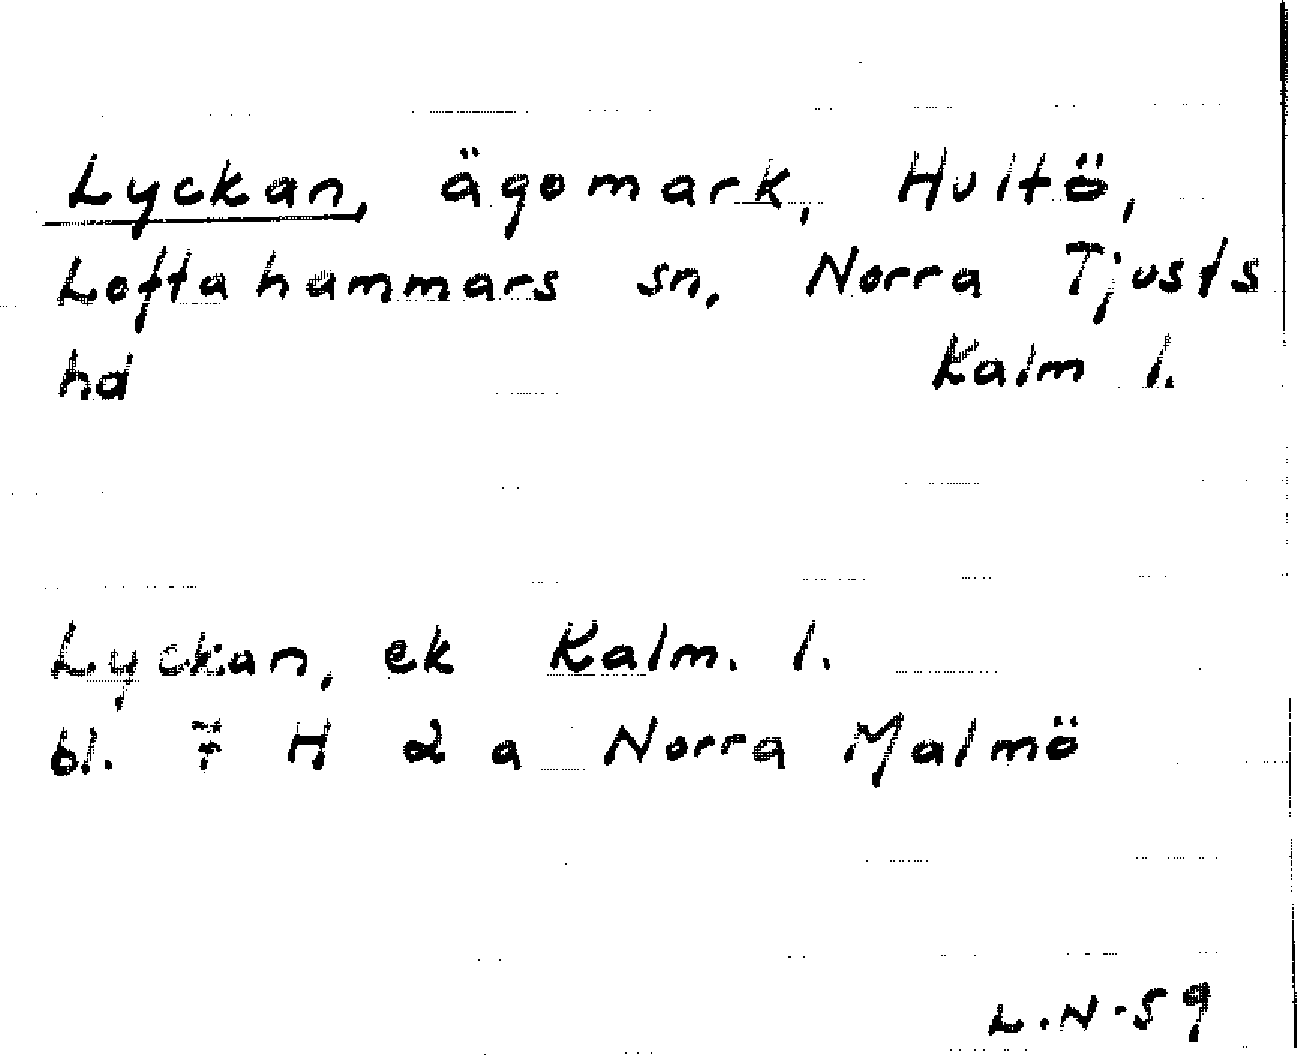 Lyckan, ägomark, Hultö,
Loftahammars sn, Norra Tjusts
hd Kalm l.
Lyckan, ek Kalm. l.
bl. 7 H d a Norra Malmö
L.N-59